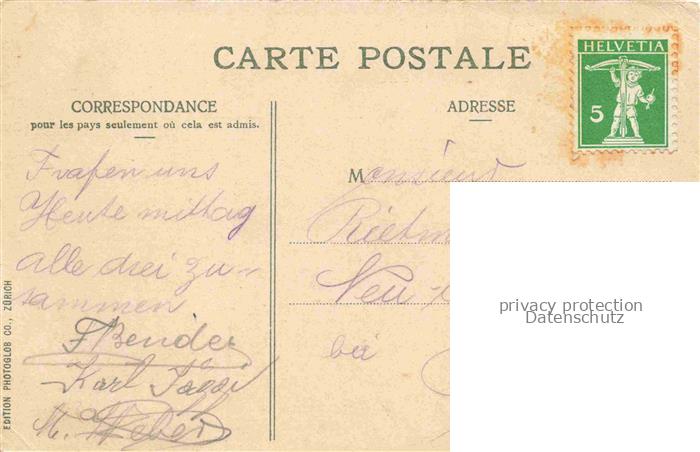 CARTE POSTALE
HELVETIA
5
CORRESPONDANCE
pour les pays seulement où cela est admis.
ADRESSE
Monsieur
Neu
bei
uns
Heute mittag
alle drei zu-
sammen
F Bender
Karl
M. Weber
EDITION PHOTOGLOB CO., ZÜRICH
privacy protection
Datenschutz